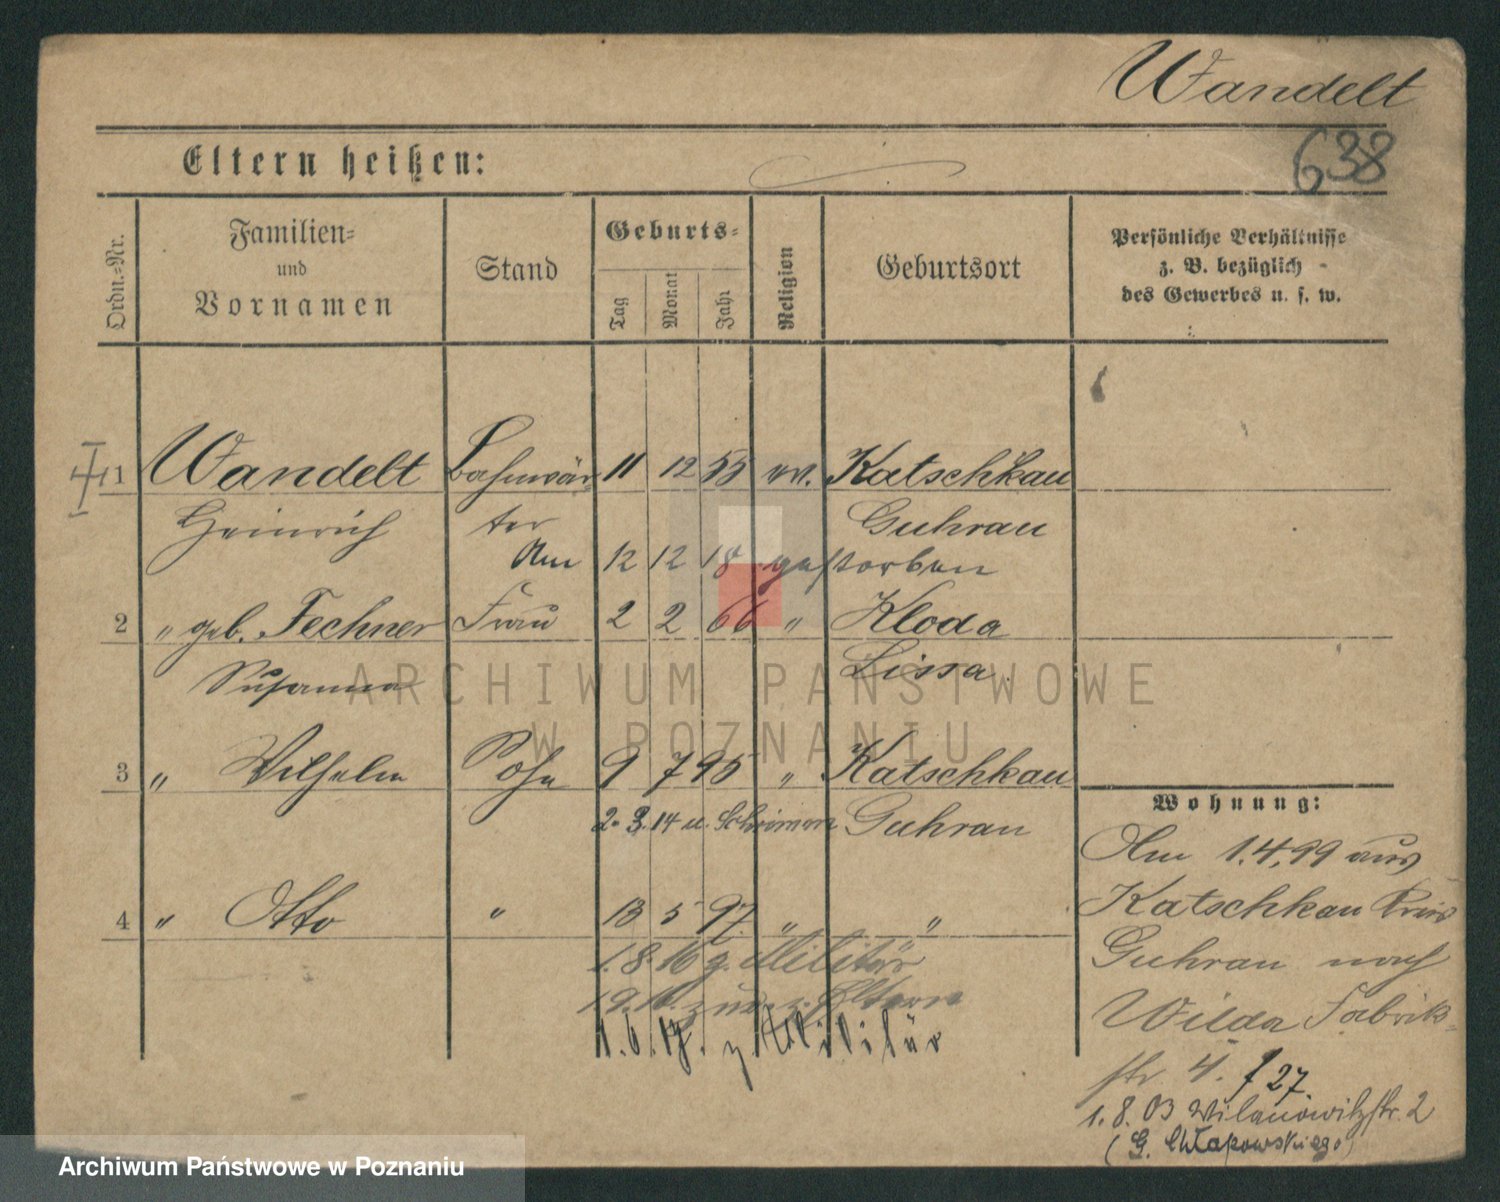 Wandelt
638
Eltern heißen:
Ordn.-Nr.
Familien-
und
Vornamen
Stand
Geburts-
Tag
Monat
Jahr
Religion
Geburtsort
Persönliche Verhältnisse
z. B. bezüglich
des Gewerbes u. s. w.
1 Wandelt Bahnwär- 11 12 55 ev. Katschkau
Heinrich ter Guhrau
Am 12 12 18 gestorben
2 " geb. Fechner Frau 2 2 66 " Kloda
Susanna Lissa.
3 " Wilhelm Sohn 9 7 95 " Katschkau
2. 3. 14 n. Schrimm Guhrau
4 " Otto " 13 5 97 " "
1. 8. 16 z. Militär
19. 10. zur. z. Eltern
1. 6. 17. z. Militär
Wohnung:
Am 1.4.99 aus
Katschkau Kreis
Guhrau nach
Wilda Fabrik-
str. 4. f 27
1. 8. 03 Wilamowitzstr. 2
(G. Chłapowskiego)
ARCHIWUM PAŃSTWOWE
W POZNANIU
Archiwum Państwowe w Poznaniu